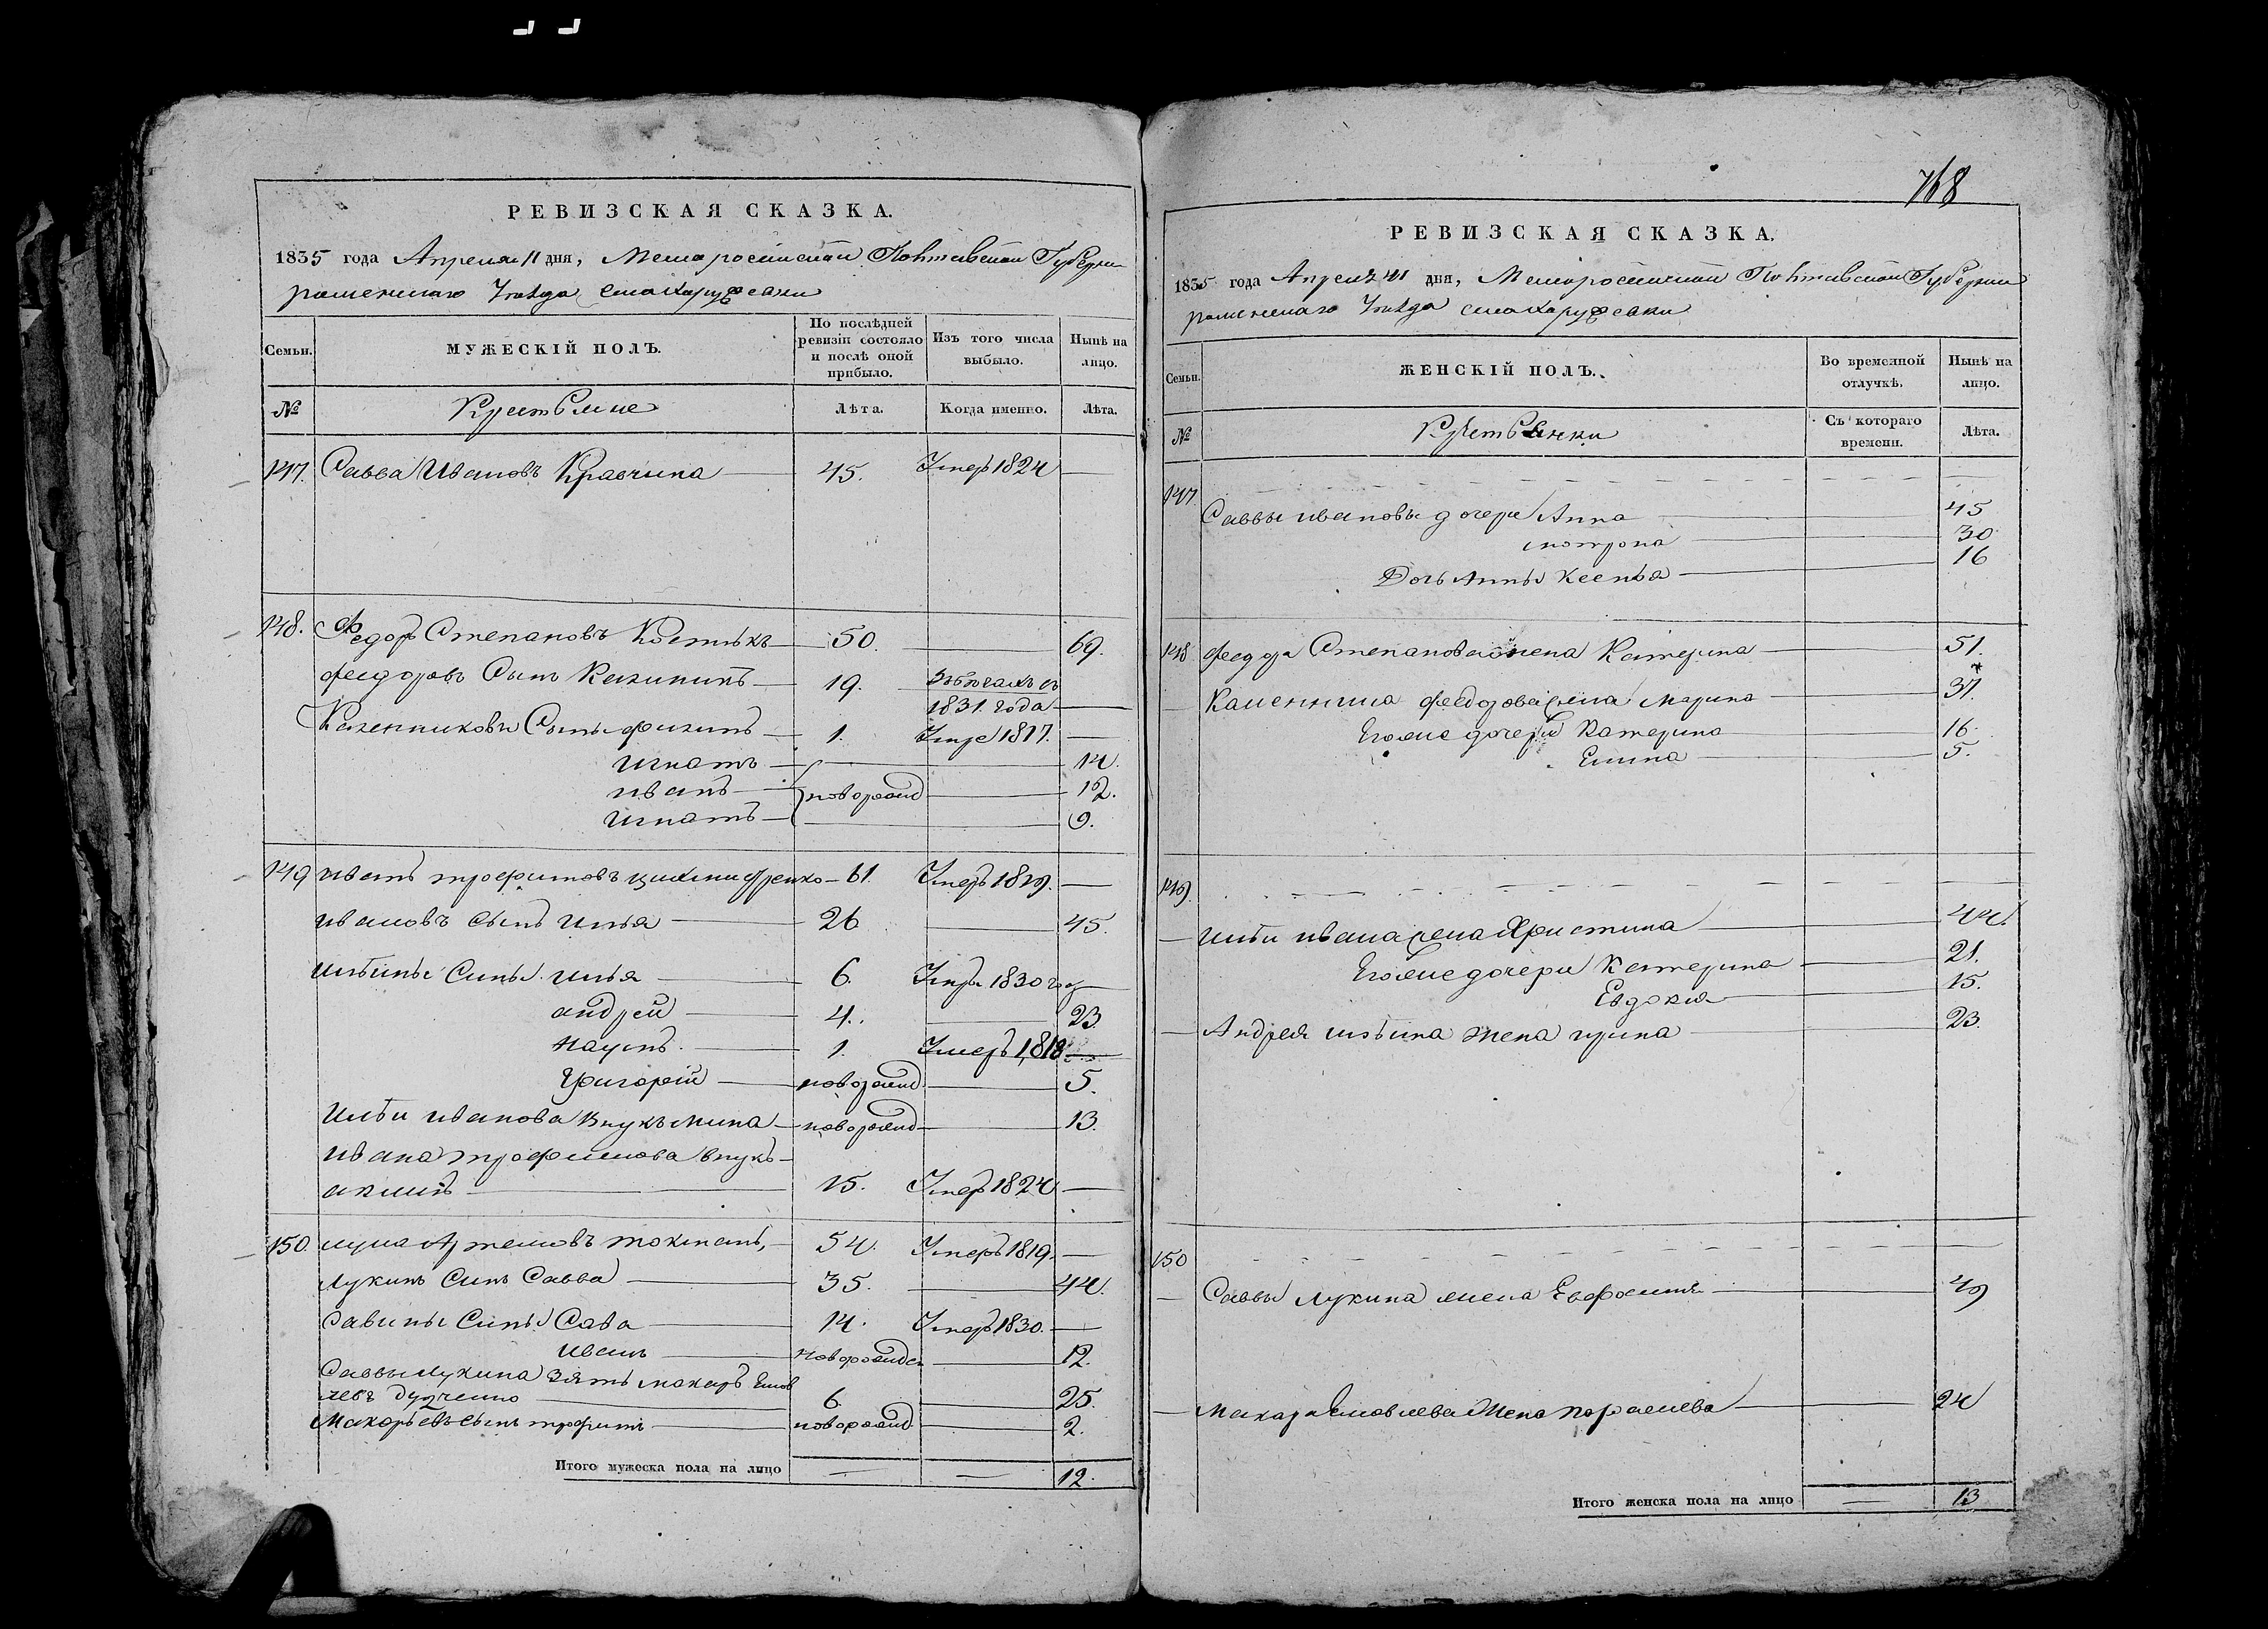 768
РЕВИЗСКАЯ СКАЗКА.
1835 года Апреля 11 дня, Малороссийской Полтавской Губернии
роменскаго Уезда села Харуфевки
Семьи.
МУЖЕСКІЙ ПОЛЪ.
По послѣдней ревизіи состояло и послѣ оной прибыло.
Изъ того числа выбыло.
Нынѣ на лицо.
№
Крестьяне
Лѣта.
Когда именно.
Лѣта.
147. Савва Ивановъ Кравчина 45. Умеръ 1824
148. Федоръ Степановъ 50. 69.
Федоровъ Сынъ 19. въ бегахъ съ
1831. года
Сынъ 1. Умре 1817.
Игнатъ 14.
иванъ новорожд 12.
Игнатъ 9.
149 иванъ трофимовъ 61. Умеръ 1819.
ивановъ сынъ Илья 26 45.
Ильины Сины. Илья 6. Умръ 1830 год
андрей 4. 23.
Наумъ. 1. Умеръ 1818
Григорій новорожд 5.
Ильи иванова внукъ мина новорожд 13.
ивана трофимова внукъ
акимъ 15. Умеръ 1824
150. лука Артемовъ 54. Умеръ 1819.
Лукинъ Синъ Савва 35. 44.
Савины Сины Сава 14. Умеръ 1830.
иванъ новорожден 12.
Саввы Лукина зять макаръ Яков
левъ Дудченко 6. 25.
Макарьевъ сынъ трофимъ новорожд 2.
Итого мужеска пола на лицо 12.
РЕВИЗСКАЯ СКАЗКА.
1835 года Апреля 11 дня, Малороссийской Полтавской Губернии
роменскаго Уезда села Харуфевки
Семьи.
ЖЕНСКІЙ ПОЛЪ.
Во временной отлучкѣ.
Нынѣ на лицо.
№
Крестьянки
Съ котораго времени.
Лѣта.
147.
Саввы ивановы дочери Анна 45
мотрона 30
Дочь Анны Ксенья 16
148 Федора Степанова жена Катерина 51.
Федорова жена Марина 37.
Его же дочери Катерина 16.
Елина 5.
149.
Ильи ивана жена Христина 44.
Его же дочери Катерина 21.
Евдокия 15.
Андрея ильина жена ирина 23.
150
Саввы Лукина жена Евфосиния 49
Макара Яковлева Жена парасиева 24
Итого женска пола на лицо 13